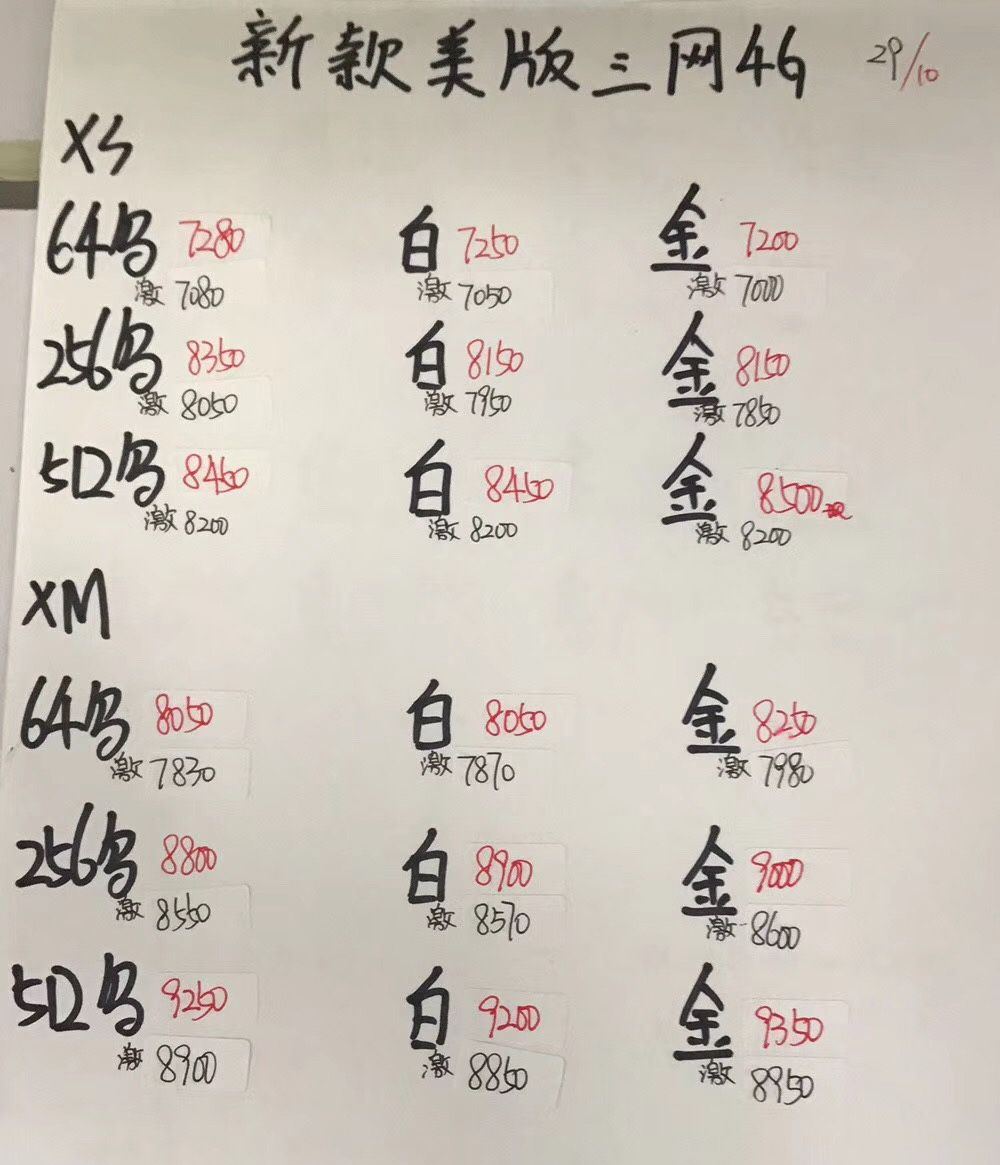 新款美版三网4G 29/10
XS
64乌 7280 白 7250 金 7200
激 7080 激 7050 激 7000
256乌 8350 白 8150 金 8150
激 8050 激 7950 激 7850
512乌 8450 白 8450 金 8500现
激 8200 激 8200 激 8200
XM
64乌 8050 白 8050 金 8250
激 7830 激 7870 激 7980
256乌 8800 白 8900 金 9000
激 8550 激 8570 激 8600
512乌 9250 白 9200 金 9350
激 8900 激 8850 激 8950